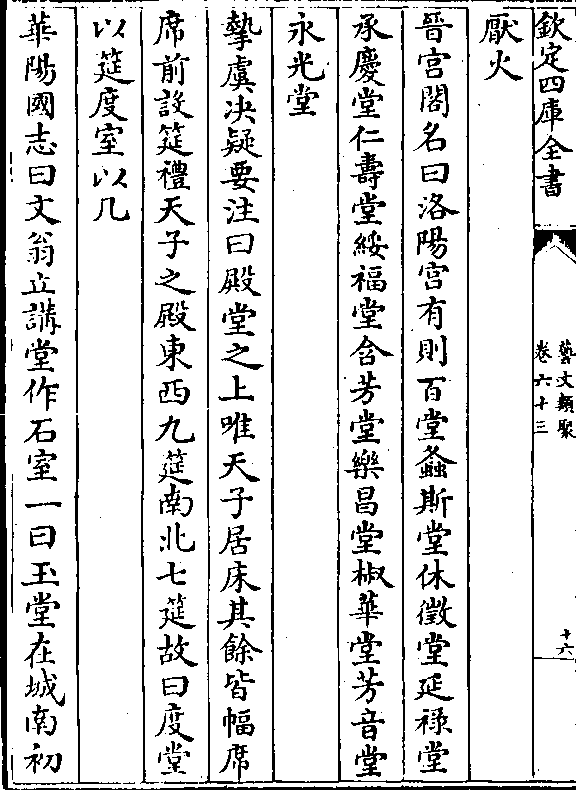 欽定四庫全書
藝文類聚
卷六十三
十六
厭火
晉宮閣名曰洛陽宮有則百堂螽斯堂休徵堂延祿堂
承慶堂仁壽堂綏福堂含芳堂樂昌堂椒華堂芳音堂
永光堂
摯虞决疑要注曰殿堂之上唯天子居床其餘皆幅席
席前設筵禮天子之殿東西九筵南北七筵故曰度堂
以筵度室以几
華陽國志曰文翁立講堂作石室一曰玉堂在城南初